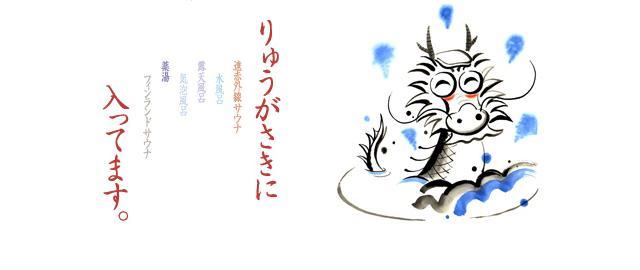 りゅうがさきに
遠赤外線サウナ
水風呂
露天風呂
気泡風呂
薬湯
フィンランドサウナ
入ってます。